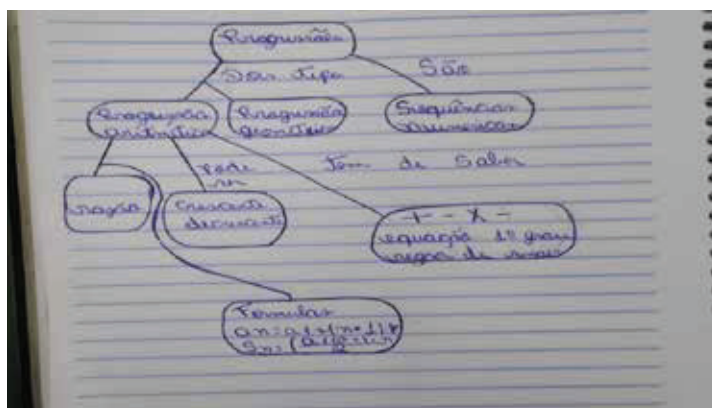 Progressões
Dois tipo
São
Progressão
aritmética
Progressão
geométrica
Sequências
numéricas
pode
ser
Tem de Saber
razão
Crescente
decrescente
+ - x -
equação 1º grau
regra de sinais
Fórmulas
an=a1+(n-1)r
Sn=(a1
2